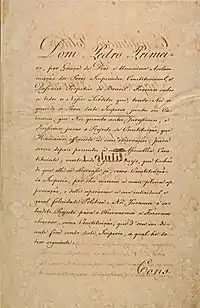 Dom Pedro Primei-
ro, por Graça de Deos, e Unanime Acclama-
ção dos Povos, Imperador Constitucional, e
Defensor Perpetuo do Brasil: Fazemos saber
a todos os Nossos Subditos, que tendo-Nos re-
querido os Povos deste Imperio, juntos em Ca-
maras, que Nós quanto antes jurassemos, e
fizessemos jurar o Projecto de Constituição, que
Haviamos offerecido ás suas observações, para
serem depois presentes á nova Assembléa Cons-
tituinte; mostrando o grande desejo, que tinhão
de que elle se observasse já como Constituição
do Imperio, por lhes merecer a mais plena ap-
provação, e delle esperarem a sua individual, e
geral felicidade Politica: Nós Juramos o so-
bredito Projecto para o Observarmos e Fazermos
observar, como Constituição, que d'ora em di-
ante fica sendo, deste Imperio, a qual he do
teor seguinte:
Cons